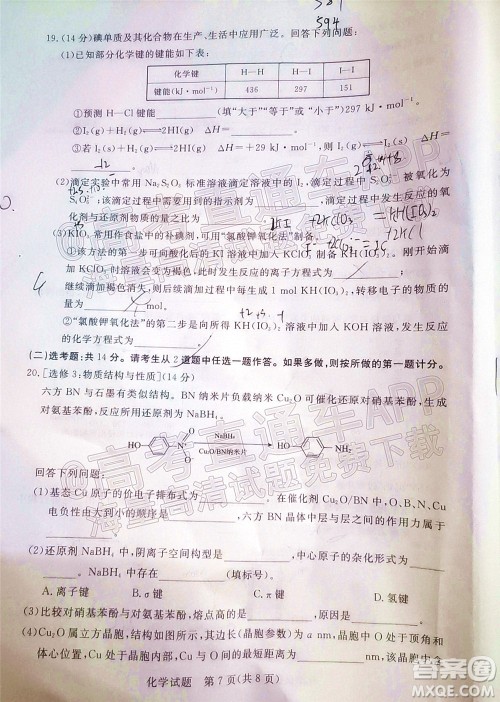 594
19.(14分)碘单质及其化合物在生产、生活中应用广泛。回答下列问题:
(1)已知部分化学键的键能如下表:
化学键 H—H H—I I—I
键能(kJ·mol⁻¹) 436 297 151
①预测 H—Cl 键键能 (填“大于”“等于”或“小于”)297 kJ·mol⁻¹。
②I₂(g)+H₂(g)⇌2HI(g) ΔH= 。
③若 I₂(s)+H₂(g)⇌2HI(g) ΔH= ,则 I₂(s)⇌I₂(g) ΔH=
(2)滴定实验中常用 Na₂S₂O₃ 标准溶液滴定溶液中的 I₂,滴定过程中 S₂O₃²⁻ 被氧化为
S₄O₆²⁻;该滴定过程中需要使用的指示剂为 ,滴定过程中的氧
化剂与还原剂物质的量之比为
(3)KIO₃ 常用作食盐中的补碘剂,可用“氯酸钾氧化法”制备。
①“氯酸钾氧化法”的第一步为向酸化的 KI 溶液中滴加 KClO₃ 溶液。刚开始滴
加 KClO₃ 时溶液会变为褐色,此时发生反应的离子方程式为 ;
继续滴加褐色消失,则后续滴加过程中每生成 1 mol KH(IO₃)₂,转移电子的物质的
量为 。
②“氯酸钾氧化法”的第二步是向所得 KH(IO₃)₂ 溶液中加入 KOH 溶液,发生反应
的化学方程式为 。
(二)选考题:共 14 分。请考生从 2 道题中任选一题作答。如果多做,则按所做的第一题计分。
20.[选修 3:物质结构与性质](14 分)
六方 BN 与石墨有类似结构。BN 纳米片负载大小仅几纳米的 Cu₂O 纳米片可催化
对氨基苯酚,所用还原剂为 NaBH₄。
HO NaBH₄ HO NH₂
Cu₂O/BN纳米片
回答下列问题:
(1)基态 Cu 原子的价电子排布式为 。在催化剂 Cu₂O/BN 中,B、O、N、Cu
电负性由大到小的顺序是 ,六方 BN 晶体中层与层之间的作用力属于
。
(2)还原剂 NaBH₄ 中,阴离子空间构型是 ,中心原子的杂化形式为 ,
NaBH₄ 中存在 (填标号)。
A. 离子键 B. σ 键 C. π 键 D. 氢键
(3)比较对硝基苯酚与对氨基苯酚,熔点高的是 ,原因是 。
(4)Cu₂O 属立方晶胞,结构如图所示,其边长(晶胞参数)为 a nm,O 处于晶胞的顶角和
体心位置,Cu 处于晶胞内部,每个 Cu 与附近的 2 个 O 距离相等,则该晶胞中含
化学试题 第 7 页(共 8 页)
@高考直通车APP
海量高清试题免费下载
@高考直通车APP
海量高清试题免费下载
答案圈
MXQE.COM